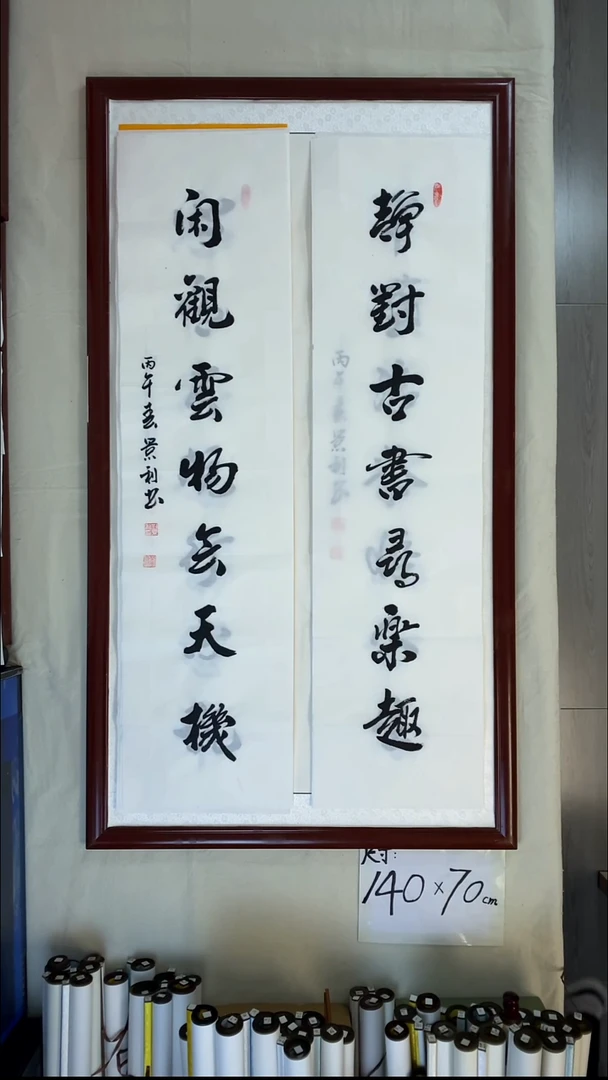 靜對古書尋樂趣
闲觀雲物会天機
丙午春景利书
尺寸:
140×70cm